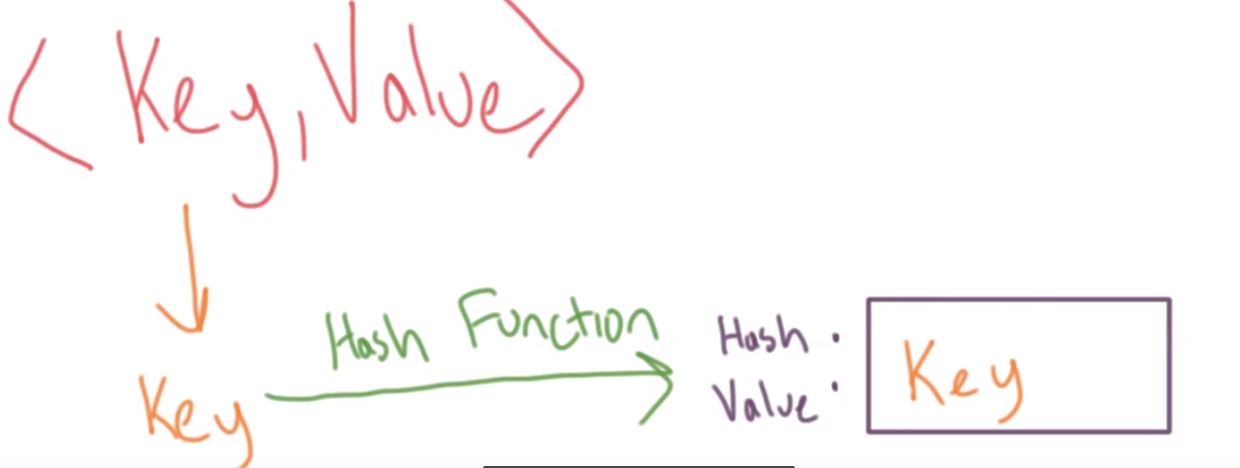 <Key, Value>
Hash Function
Key
Hash :
Value
Key